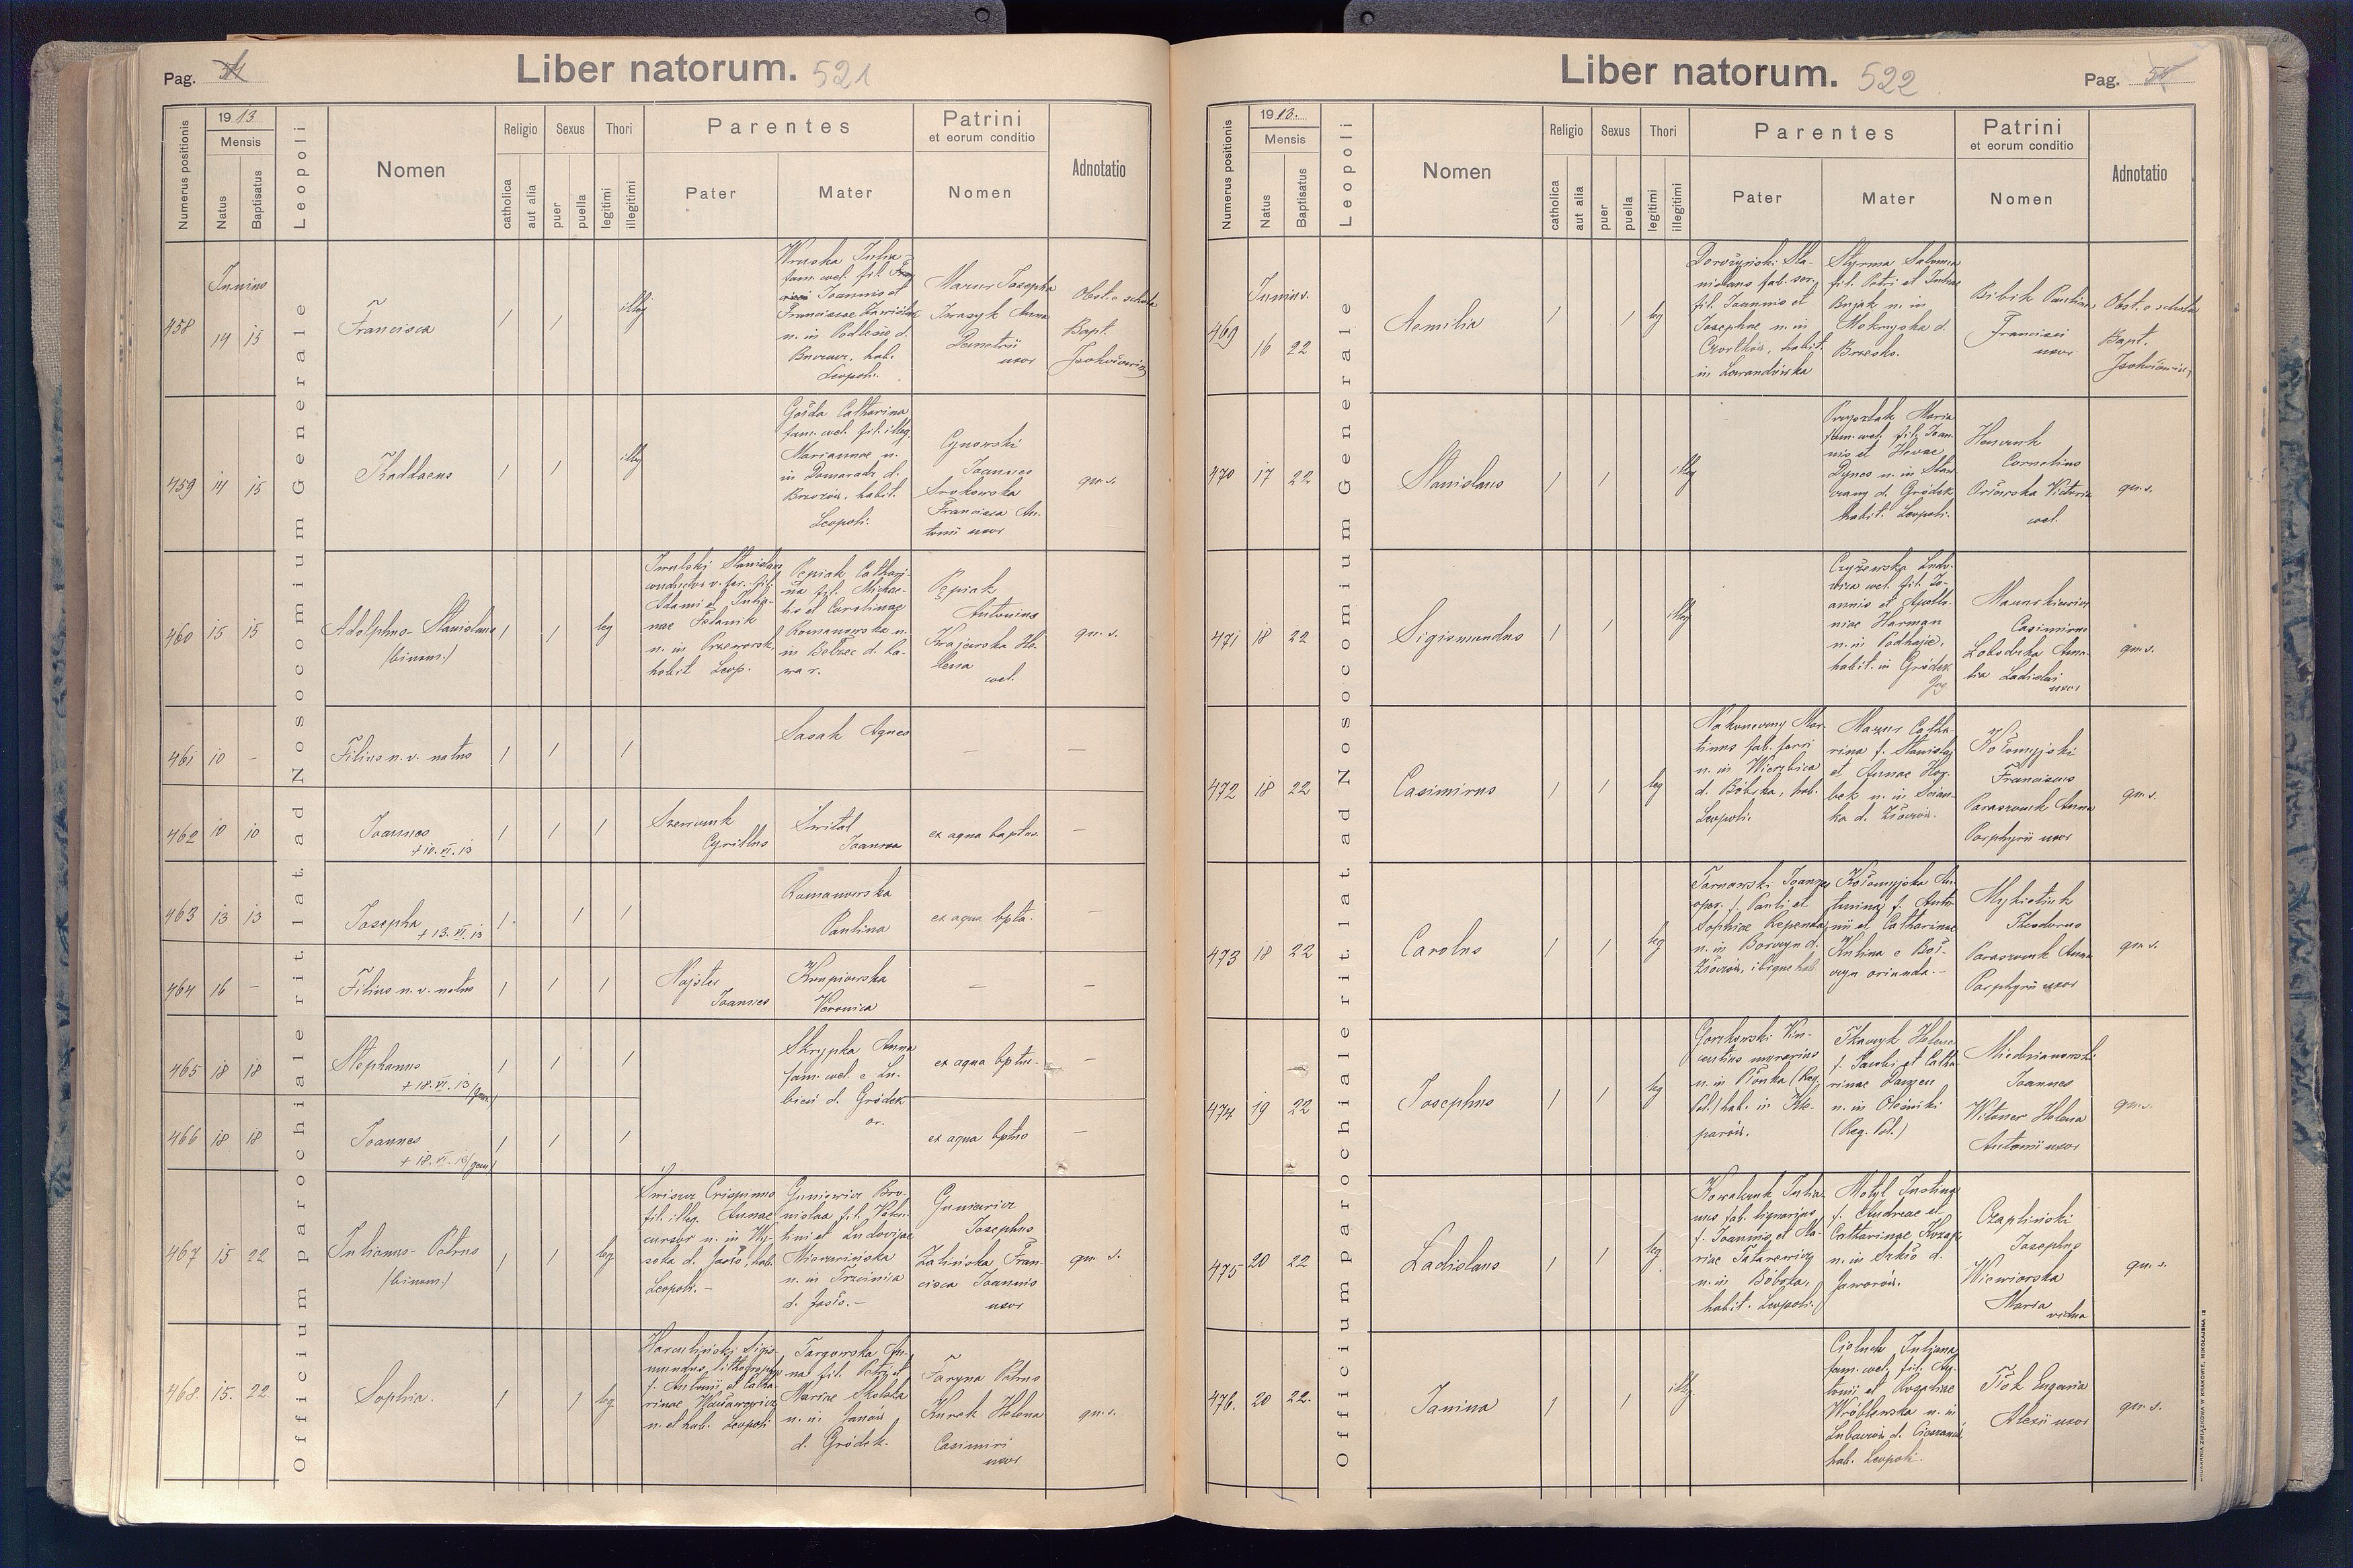 Pag. 54
Liber natorum. 521
Numerus positionis
1913
Mensis
Natus
Baptisatus
Leopoli
Nomen
Religio
catholica
aut alia
Sexus
puer
puella
Thori
legitimi
illegitimi
Parentes
Pater
Mater
Patrini
et eorum conditio
Nomen
Adnotatio
Officium parochiale rit. lat. ad Nosocomium Generale
Junius
458
14
15
Francisca
/
/
illeg
Wruska Julia
fam. coel. fil.
Joannis et
Franciscae
n. in Podlesie d.
hab.
Leopoli.
Mazur Josepha
Anna
Demetrii
uxor
Obst. e schola
Bapt.
459
14
15
Thaddaeus
/
/
illeg
Gośda Catharina
fam. coel. fil. illeg.
Mariannae n.
in Domaradz d.
Brzozów, habit.
Leopoli.
Cynowski
Joannes
Srokowska
Francisca An-
tonii uxor
qu. s.
460
15
15
Adolphus-Stanislaus
(binom.)
/
/
leg
Stanislaus
conductor v. fer. fil.
Adami et Julia-
nae
n. in Przeworsk,
habit Leop.
Pępiak Cathari-
na fil. Michae-
lis et Carolinae
Romanowska n.
in Bełzec d. Ra-
wa r.
Pępiak
Antonius
Krajewska He-
lena
coel.
qu. s.
461
10
-
Filius n. v. natus
/
/
/
Sasak Agnes
-
-
462
10
10
Joannes
+10. VI. 13
/
/
/
Szewczuk
Cyrillus
Swital
Joanna
ex aqua baptus.
-
463
13
13
Josepha
+13. VI. 13
/
/
/
Romanowska
Paulina
ex aqua bpta.
-
464
16
-
Filius n. v. natus
/
/
/
Majster
Joannes
Krupiowska
Veronica
-
-
465
18
18
Stephanus
+18. VI. 13 /gem./
/
/
/
Skrypka Anna
fam. coel. e Lu-
bień d. Gródek
or.
ex aqua bptus.
-
466
18
18
Joannes
+18. VI. 13 /gem/
/
/
/
ex aqua bptus
-
467
15
22
Julianus-Petrus
(binom.)
/
/
leg
Crispinus
fil. illeg. Annae
cursor n. in Wy-
soka d. Jasło, hab.
Leopoli. -
Guniewicz Bro-
nislaa fil. Valen-
tini et Ludovicae
n. in Trzcinica
d. Jasło. -
Guniewicz
Josephus
Zalińska Fran-
cisca Joannis
uxor
qu. s.
468.
15.
22.
Sophia.
/
/
leg
Sigis-
mundus, lithographus
f. Antonii et Catha-
rinae
n. et hab. Leopoli
Targowska An-
na fil. Petri et
Mariae Skolska
n. in Janów
d. Gródek.
Faryna Petrus
Kurek Helena
Casimiri
uxor
qu. s.
Liber natorum. 522
Pag. 55
Numerus positionis
1913.
Mensis
Natus
Baptisatus
Leopoli
Nomen
Religio
catholica
aut alia
Sexus
puer
puella
Thori
legitimi
illegitimi
Parentes
Pater
Mater
Patrini
et eorum conditio
Nomen
Adnotatio
Officium parochiale rit. lat. ad Nosocomium Generale
Junius.
469
16
22
Aemilia
/
/
leg
Dorożyński Sta-
nislaus fab. ser.
fil. Joannis et
Josephae n. in
Czortków, habit.
in Lewandówka
Styrma Salomea
fil. Petri et Juliae
Bujak n. in
Mokrzyska d.
Brzesko.
Bibik Paulina
Francisci
uxor
Obst. e schola
Bapt.
470
17
22
Stanislaus
/
/
illeg
Maria
fam. coel. fil. Joan-
nis et Hevae
Dynes n. in Staw-
czany d. Gródek
habit. Leopoli.
Cornelius
Orłowska Victoria
coel.
qu. s.
471
18
22
Sigismundus
/
/
illeg
Czyżewska Ludo-
vica coel. fil. Jo-
annis et Apollo-
niae Harman
n. in Podhajce,
habit. in Gródek
Jag
Casimirus
Ladislai
uxor
qu. s.
472
18
22
Casimirus
/
/
leg
Nakoneczny Mar-
tinus fab. ferri
n. in Wierzbica
d. Bóbrka, hab.
Leopoli.
Mazur Catha-
rina f. Stanislai
et Annae Hor-
bek n. in Scian-
ka d. Złoczów.
Kołomyjski
Franciscus
Paraszczuk Anna
Porphyrii uxor
qu. s.
473
18
22
Carolus
/
/
leg
Tarnawski Joannes
oper. f. Pauli et
Sophiae Rependa,
n. in d.
Złoczów, ibique hab
Kołomyjska An-
tonina f. Anto-
nii et Catharinae
Kulina e
oriunda. -
Mykietiuk
Theodorus
Paraszczuk Anna
Porphyrii uxor
qu. s.
474
19
22
Josephus
/
/
leg
Gorzkowski Vin-
centius murarius
n. in Płonka (Reg.
Pol.) hab. in Kle-
parów.
Tkaczyk Helena
f. Jacobi et Catha-
rinae
n. in Oleśniki
(Reg. Pol.)
Joannes
Witwer Helena
Antonii uxor
qu. s.
475
20
22
Ladislaus
/
/
leg
Kowalczuk Julia-
nus fab. lignarius
f. Joannis et Ma-
riae Tatarewicz
n. in Bóbrka,
habit. Leopoli.
Motyl Justina
f. Andreae et
Catharinae Kozak
n. in Szkło d.
Jaworów.
Czapliński
Josephus
Wiewiorska
Maria
vidua
qu. s.
476.
20
22.
Janina
/
/
illeg.
Cieluch Juliana
fam. coel. fil. An-
tonii et Rozaliae
Wróblewska n. in
Lubaczów d. Cieszanów
hab. Leopoli.
Tłok Eugenia
Alexii uxor
qu. s.
DRUKARNIA ZWIĄZKOWA W KRAKOWIE, MIKOŁAJSKA 13